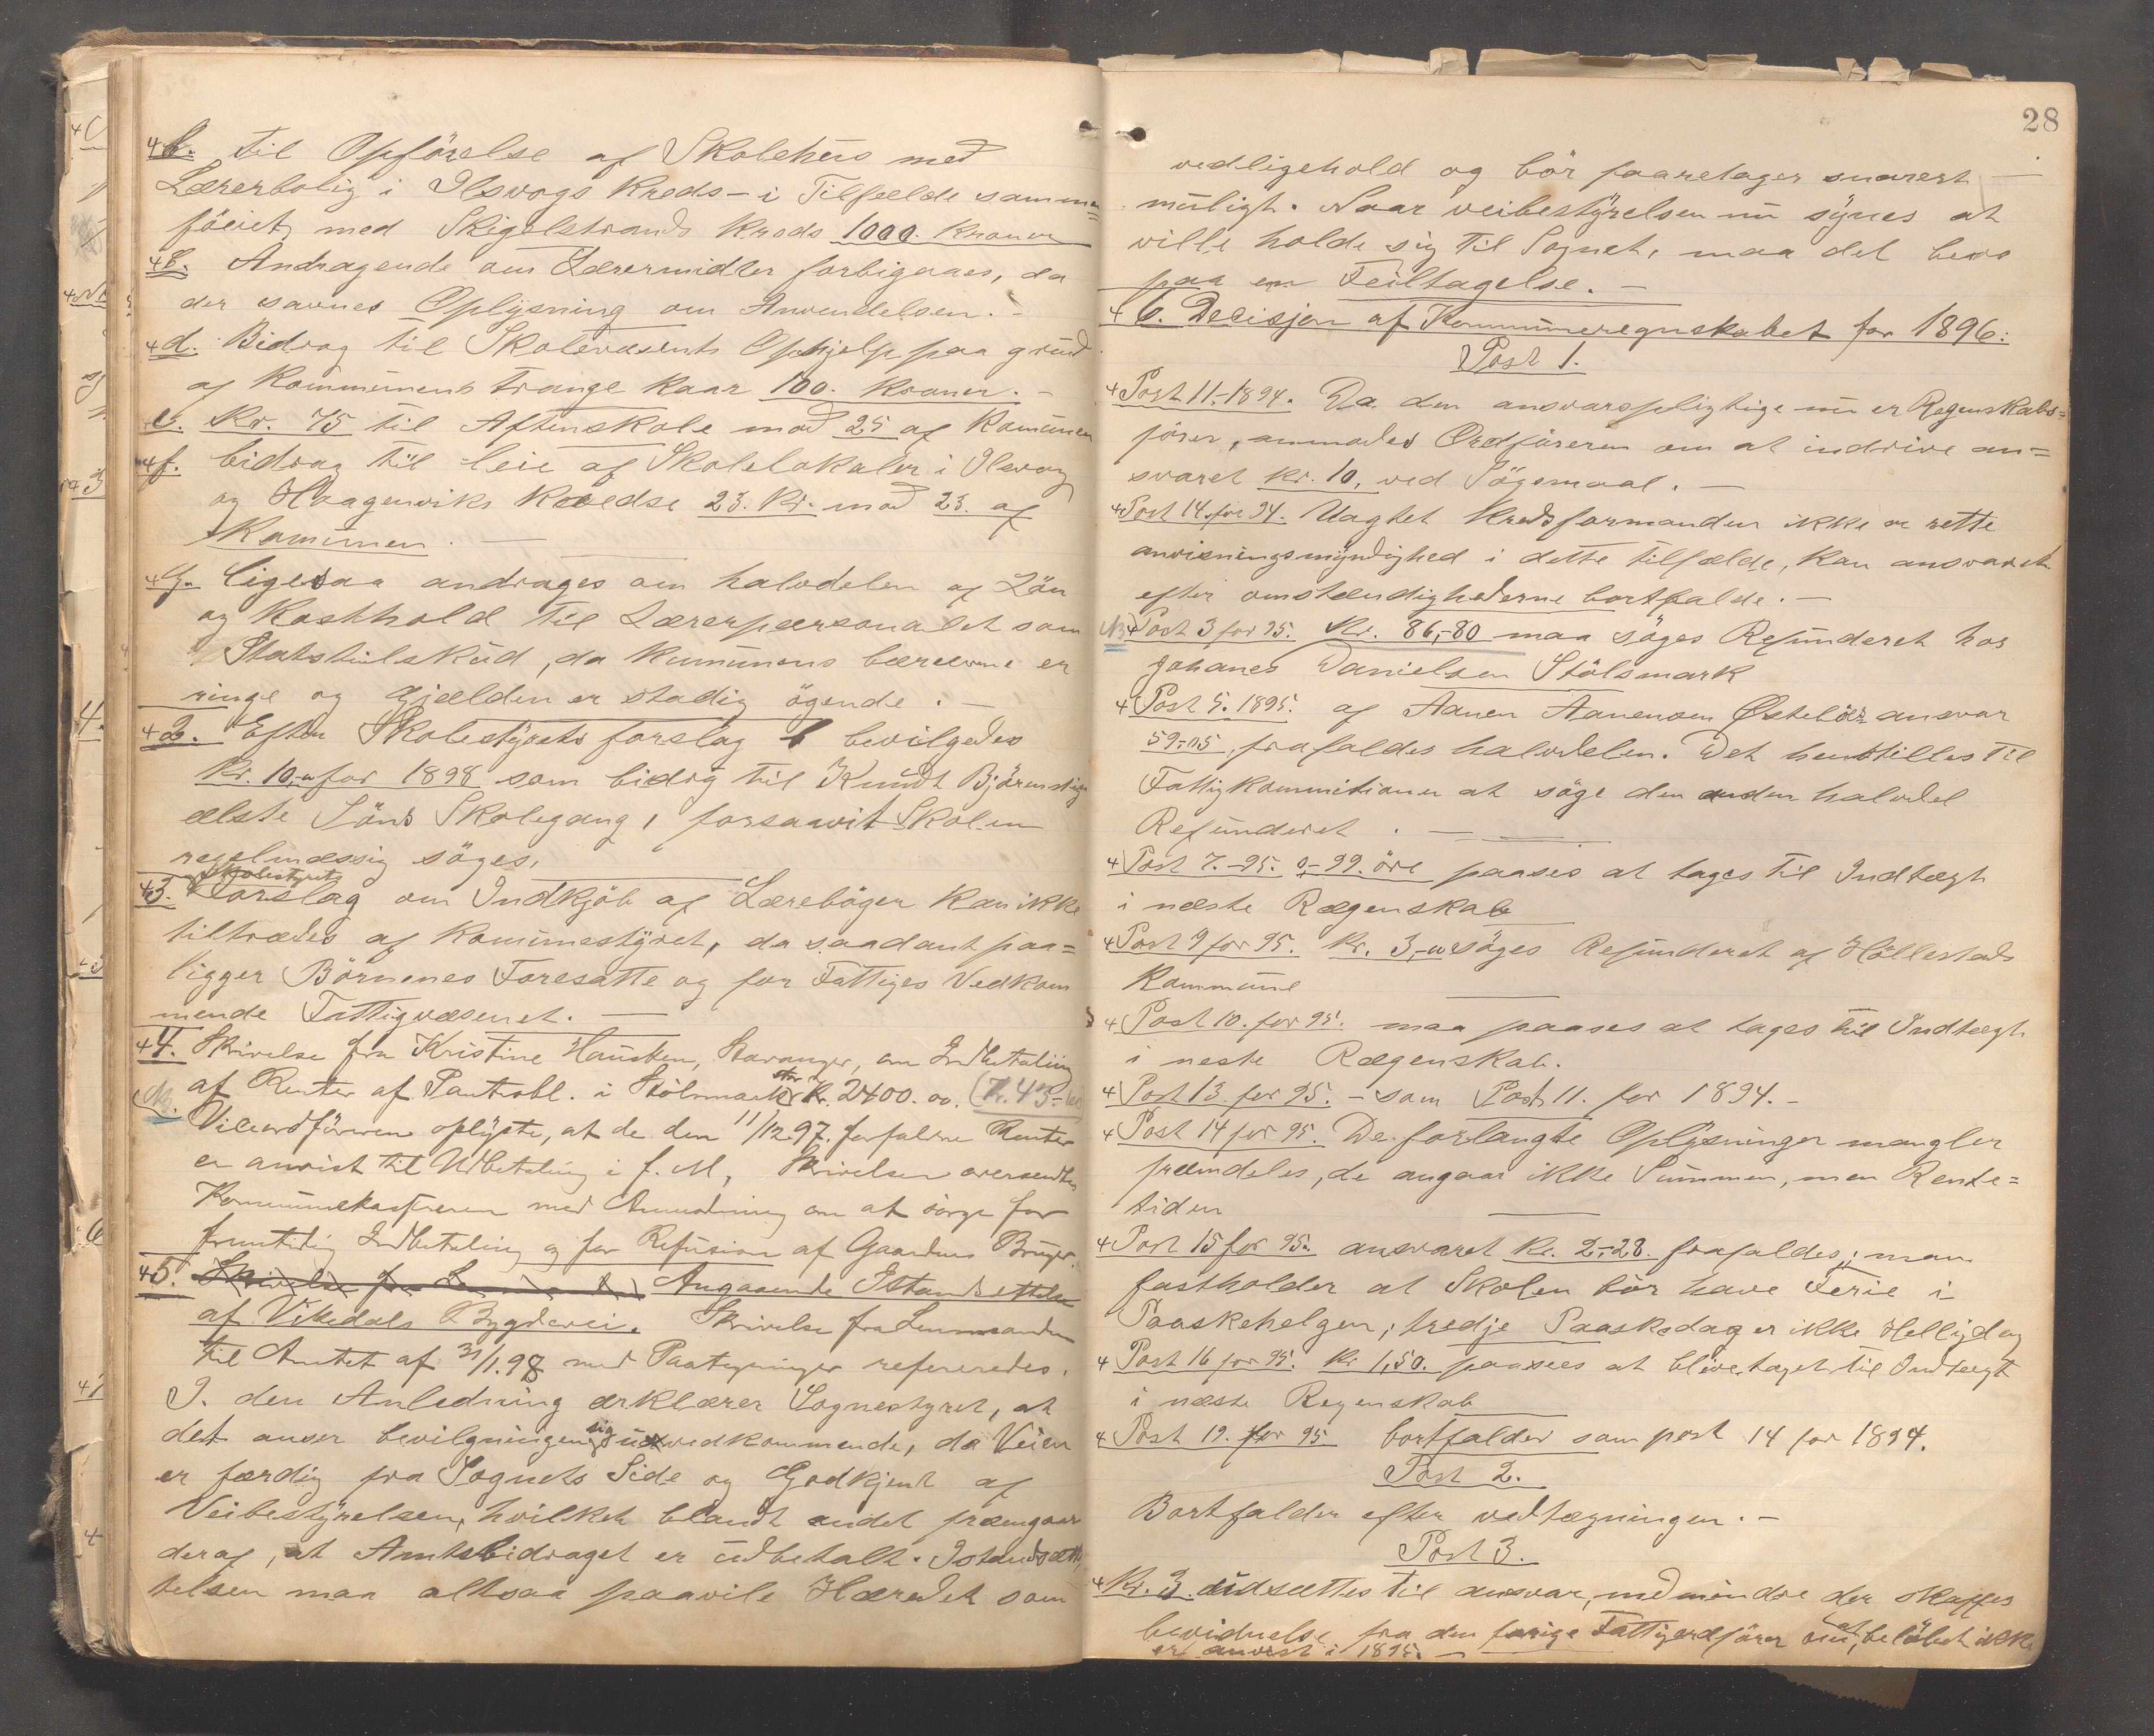 b. til Opförelse af Skolehus med
Lærerbolig i Ilsvogs Kreds - i Tilfælde sammen=
föiet med Skigelstrands Kreds 1000. Kroner
c. Andragende om Lærermidler forbigaaes, da
der savnes Oplysning om Anvendelsen. -
d. Bidrag til Skolevæsents Ophjelp paa grund
af Kommunens trange Kaar 100. Kroner. -
e. Kr. 75 til Aftenskole mod 25 af Komunen
f. bidrag til leie af Skolelokaler i Ilsvog
og Haagenviks Kredse 23. Kr. mod 23. af
Komunen. -
g. ligesaa andrages om halvdelen af Lön
og Kosthold til Lærerpersonalet som
Statstilskud, da kumunens bæreevne er
ringe og Gjælden er stadig ögende. -
2. Efter Skolestyrets forslag bevilgedes
Kr. 10,- for 1898 som bidrag til Knudt Björnstigs
ælste Söns Skolegang, forsaavit Skolen
regelmæssig söges,
Skolestyrets
3. Forslag om Indkjöb af Læreböger kan ikke
tiltrædes af Kommunestyret, da saadant paa=
ligger Börnenes Foresatte og for Fattiges Vedkom
mende Fattigvæsenet. -
4. Skrivelse fra Kristine Hausken, Stavanger, om Indbetaling
af Renter af Pantobl. i Stölsmark stor Kr. 2400.00.
Viceordföreren oplyste, at de den 11/12 97. forfaldne Renter
er anvist til Udbetaling i f. M, Skrivelsen oversendtes
Kommunekassereren med Anmodning om at sörge for
fremtidig Indbetaling og for Refusion af Gaardens Bruger.
5. Angaaende Istandsættelse
af Vikedals Bygdevei. Skrivelse fra Lensmanden
til Amtet af 31/1. 98 med Paategninger refereredes.
I. den Anledning ærklærer Sognestyret, at
det anser bevilgningen sig uvedkommende, da Veien
er færdig fra Sognets Side og Godkjent af
Veibestyrelsen, hvilket blandt andet fræmgaar
deraf, at Amtsbidraget er udbetalt. Istandsæt
telsen maa altsaa paavile Hæredet som
28
vedligehold og bör foaretages snarest -
muligt. Naar veibestyrelsen nu synes at
ville holde sig til Sognet, maa det bero
paa en Feiltagelse. -
6. Decisjon af Kommuneregnskabet for 1896:
Post 1.
Post 11.-1894. Da den ansvarspligtige nu er Regenskabs=
förer, anmodes Ordföreren om at inddrive an=
svaret kr. 10, ved Sögsmaal. -
Post 14. for 94. Uagtet Kredsformanden ikke er rette
anvisningsmyndighed i dette tilfælde, kan ansvaret
efter omstændighederne bortfalde. -
Post 3 for 95. Kr. 86,-80 maa söges Refunderet hos
Johanes Danielsen Stölsmark
Post 5. 1895. af Aanen Aanensen Østelöer ansvar
59,-05, frafaldes halvdelen. Det henstilles til
Fattigkommitionen at söge den anden halvdel
Refunderet. -
Post 7.-95. 0-99. öre paases at tages til Indtægt
i næste Rægenskab
Post 9 for 95. Kr. 3,- söges Refunderet af Höllestads
Kommune
Post 10. for 95. maa paases at tages til Indtægt
i neste Rægenskab.
Post 13. for 95. - som Post 11. for 1894. -
Post 14 for 95. De forlangte Oplysninger mangler
fræmdeles, de angaar ikke Summen, men Rente=
tiden
Post 15 for 95. ansvaret Kr. 2,-28. frafaldes; man
fastholder at Skolen bör have Ferie i
Paaskehelgen; tredje Paaskedag er ikke Helligdag
Post 16 for 95. Kr 1,50. paasees at blive taget til Indtægt
i næste Regenskab
Post 19. for 95 bortfalder som post 14 for 1894.
Post 2.
Bortfalder efter vedtægningen. -
Post 3.
Kr. 3. udsættes til ansvar, medmindre der skaffes
bevidnelse fra den forige Fattigordförer om, at belöbet ikke
er anvist i 1895. -